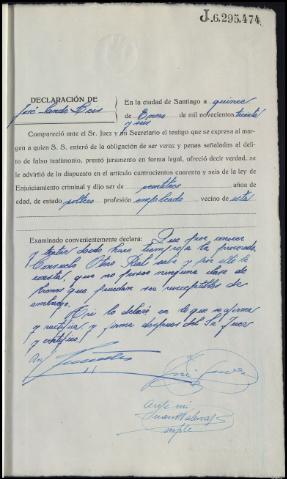 J.6.295.474
DECLARACIÓN DE
José
En la ciudad de Santiago a quince
de Enero de mil novecientos treinta
y seis
Compareció ante el Sr. Juez y mi Secretario el testigo que se expresa al mar-
gen a quien S. S. enteró de la obligación de ser veraz y penas señaladas al deli-
to de falso testimonio, prestó juramento en forma legal, ofreció decir verdad, se
le advirtió de lo dispuesto en el artículo cuatrocientos cuarenta y seis de la ley de
Enjuiciamiento criminal y dijo ser de años de
edad, de estado soltero profesión empleado vecino de esta
Examinado convenientemente declara: Que por conocer
y tratar desde hace tiempo a la procesada
Consuelo sabe y por ello le
consta, que no posee ninguna clase de
bienes que puedan ser susceptibles de
embargo.
Así lo declaró en lo que se afirma
y ratifica y firma despues del Sr. Juez
y certifico.
José
Ante mi